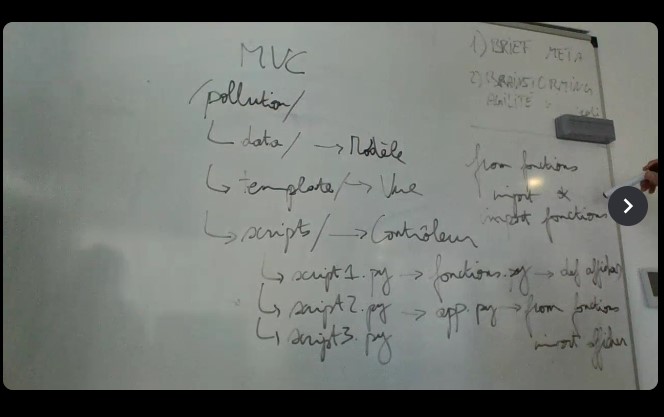 MVC
/pollution/
↳ data/ → Modèle
↳ template/ → Vue
↳ scripts/ → Contrôleur
↳ script1.py → fonctions.py → def afficher
↳ script2.py → app.py → from fonctions
import afficher
↳ script3.py
1) BRIEF META
2) BRAINSTORMING
AGILITÉ
from fonctions
import *
import fonctions